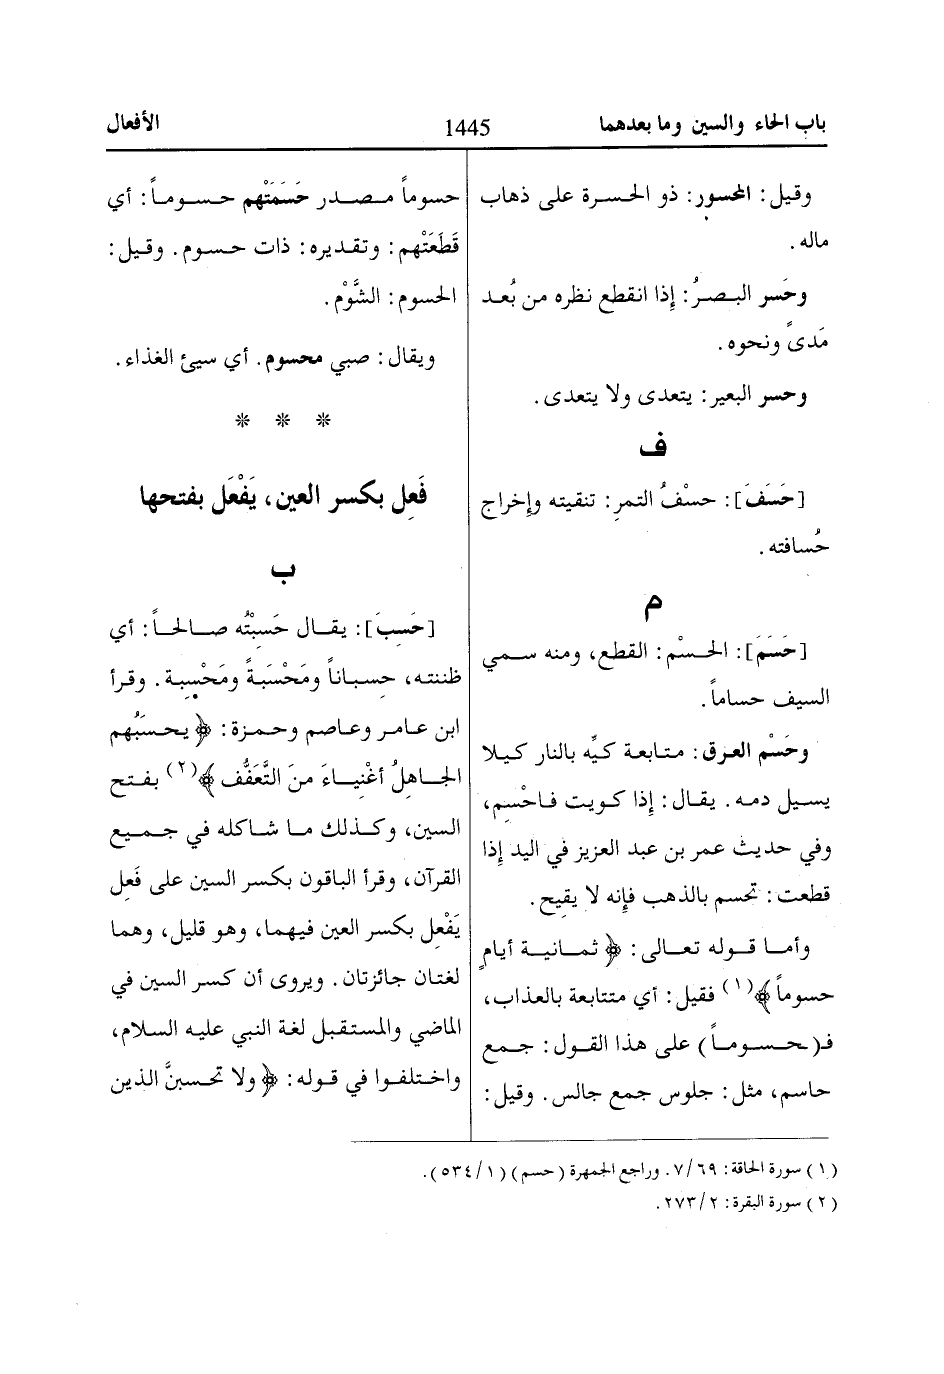 باب الحاء والسين وما بعدهما
1445
الأفعال
وقيل: المحسور: ذو الحسرة على ذهاب
ماله.
وحَسر البصرُ: إذا انقطع نظره من بُعد
مَدىً ونحوه.
وحسر البعير: يتعدى ولا يتعدى.
ف
[حَسَفَ]: حسْفُ التمرِ: تنقيته وإخراج
حُسافته.
م
[حَسَمَ]: الحسْم: القطع، ومنه سمي
السيف حساماً.
وحَسْم العرق: متابعة كيِّه بالنار كيلا
يسيل دمه. يقال: إذا كويت فاحْسِم،
وفي حديث عمر بن عبد العزيز في اليد إذا
قطعت: تحسم بالذهب فإنه لا يقيح.
وأما قوله تعالى: ﴿ثمانية أيامٍ
حسوماً﴾(١) فقيل: أي متتابعة بالعذاب،
فـ(حسوماً) على هذا القول: جمع
حاسم، مثل: جلوس جمع جالس. وقيل:
حسوماً مصدر حَسَمَتْهم حسوماً: أي
قَطَعَتْهم: وتقديره: ذات حسوم. وقيل:
الحسوم: الشَّوْم.
ويقال: صبي محسوم. أي سيئ الغذاء.
* * *
فَعِل بكسر العين، يَفْعَل بفتحها
ب
[حَسِبَ]: يقال حَسِبْتُه صالحاً: أي
ظننته، حِسباناً ومَحْسَبَةً ومَحْسِبة. وقرأ
ابن عامر وعاصم وحمزة: ﴿يحسَبُهم
الجاهلُ أغْنياءَ منَ التَّعَفُّف﴾(٢) بفتح
السين، وكذلك ما شاكله في جميع
القرآن، وقرأ الباقون بكسر السين على فَعِل
يَفْعِل بكسر العين فيهما، وهو قليل، وهما
لغتان جائزتان. ويروى أن كسر السين في
الماضي والمستقبل لغة النبي عليه السلام،
واختلفوا في قوله: ﴿ولا تحسبنَّ الذين
(١) سورة الحاقة: ٧/٦٩. وراجع الجمهرة (حسم) (٥٣٤/١).
(٢) سورة البقرة: ٢٧٣/٢.